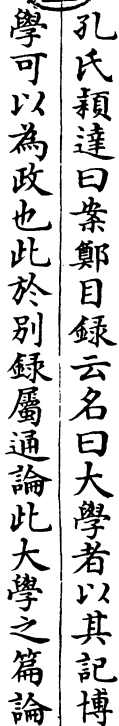 孔氏穎達曰案鄭目録云名曰大學者以其記博
學可以為政也此於别録屬通論此大學之篇論